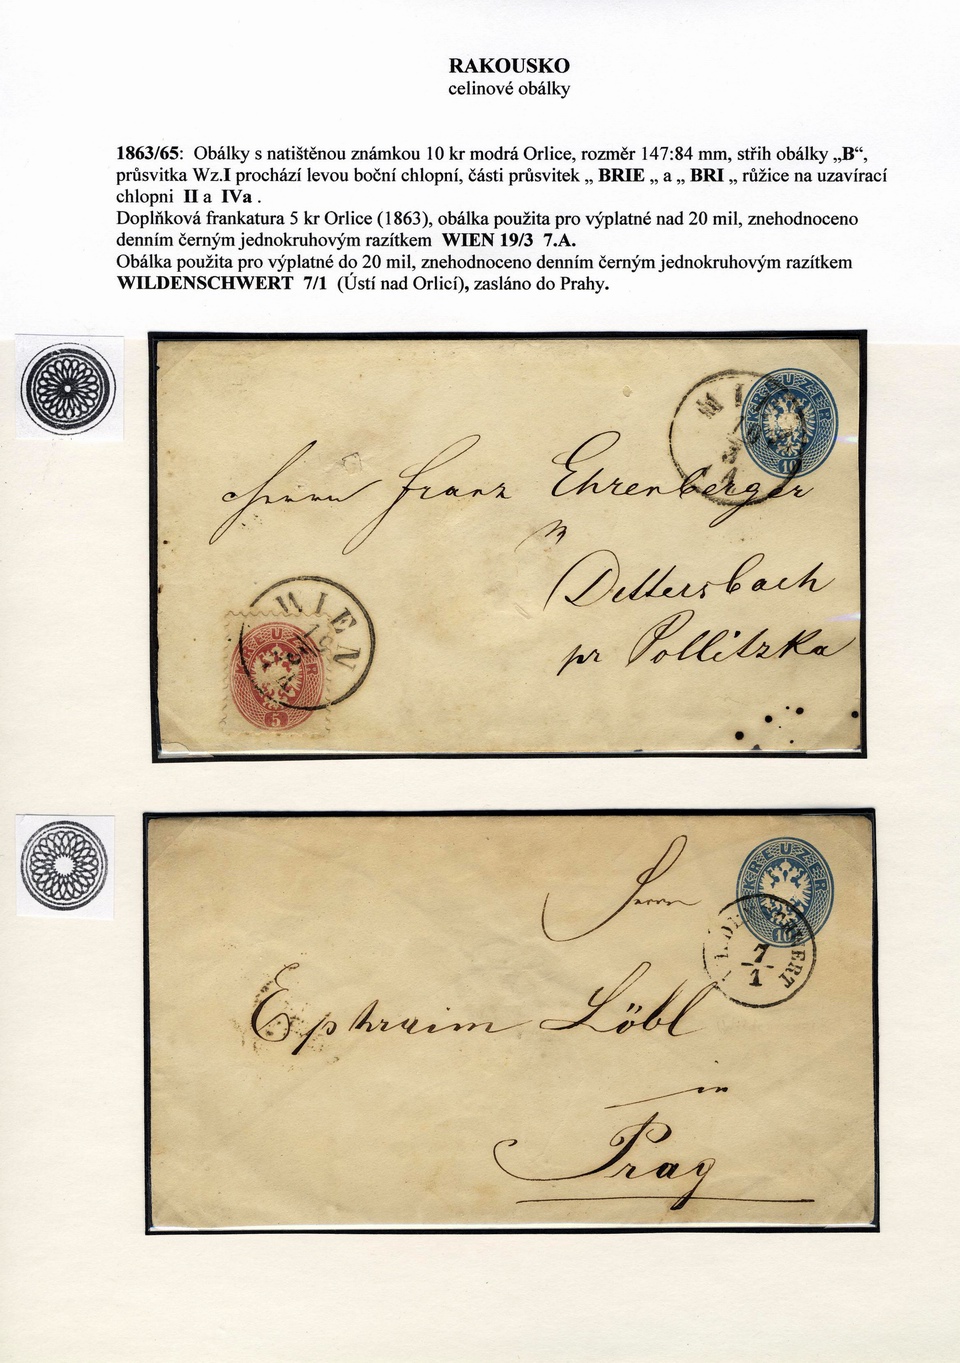 RAKOUSKO
celinové obálky
1863/65: Obálky s natištěnou známkou 10 kr modrá Orlice, rozměr 147:84 mm, střih obálky „B“,
průsvitka Wz.I prochází levou boční chlopní, části průsvitek „ BRIE „ a „ BRI „ růžice na uzavírací
chlopni II a IVa .
Doplňková frankatura 5 kr Orlice (1863), obálka použita pro výplatné nad 20 mil, znehodnoceno
denním černým jednokruhovým razítkem WIEN 19/3 7.A.
Obálka použita pro výplatné do 20 mil, znehodnoceno denním černým jednokruhovým razítkem
WILDENSCHWERT 7/1 (Ústí nad Orlicí), zasláno do Prahy.
KREUZER
10
Herrn Franz Ehrenberger
in
Dittersbach
pr Pollitzka
WIEN
19
3
KREUZER
5
KREUZER
10
7
1
Herrn
Ephraim Löbl
in
Prag